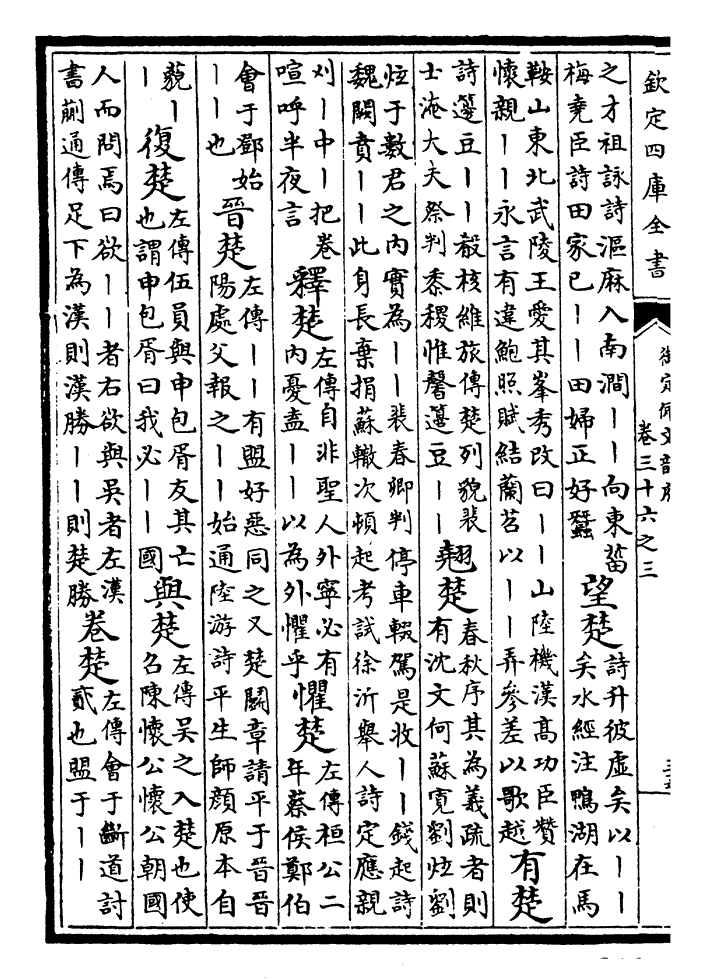 欽定四庫全書
御定佩文韻府
卷三十六之三
之才祖詠詩漚麻入南澗——向東菑
梅堯臣詩田家已——田婦正好蠶
望楚
詩升彼虛矣以——
矣水經注鴨湖在馬
鞍山東北武陵王愛其峯秀改曰——山陸機漢高功臣贊
懷親——永言有違鮑照賦結蘭苕以——弄參差以歌越
有楚
詩籩豆——殽核維旅傳楚列貌裴
士淹大夫祭判黍稷惟馨籩豆——
翹楚
春秋序其為義疏者則
有沈文何蘇寬劉炫劉
炫于數君之內實為——裴春卿判停車輟駕是收——錢起詩
魏闕賁——此身長棄捐蘇轍次頓起考試徐沂舉人詩定應親
刈—中—把卷
喧呼半夜言
釋楚
左傳自非聖人外寧必有
內憂盍——以為外懼乎
懼楚
左傳桓公二
年蔡侯鄭伯
會于鄧始
——也
晉楚
左傳——有盟好惡同之又楚鬭章請平于晉晉
陽處父報之——始通陸游詩平生師顔原本自
藐—
—
復楚
左傳伍員與申包胥友其亡
也謂申包胥曰我必——國
與楚
左傳吳之入楚也使
召陳懷公懷公朝國
人而問焉曰欲——者右欲與吳者左漢
書蒯通傳足下為漢則漢勝——則楚勝
卷楚
左傳會于斷道討
貳也盟于——